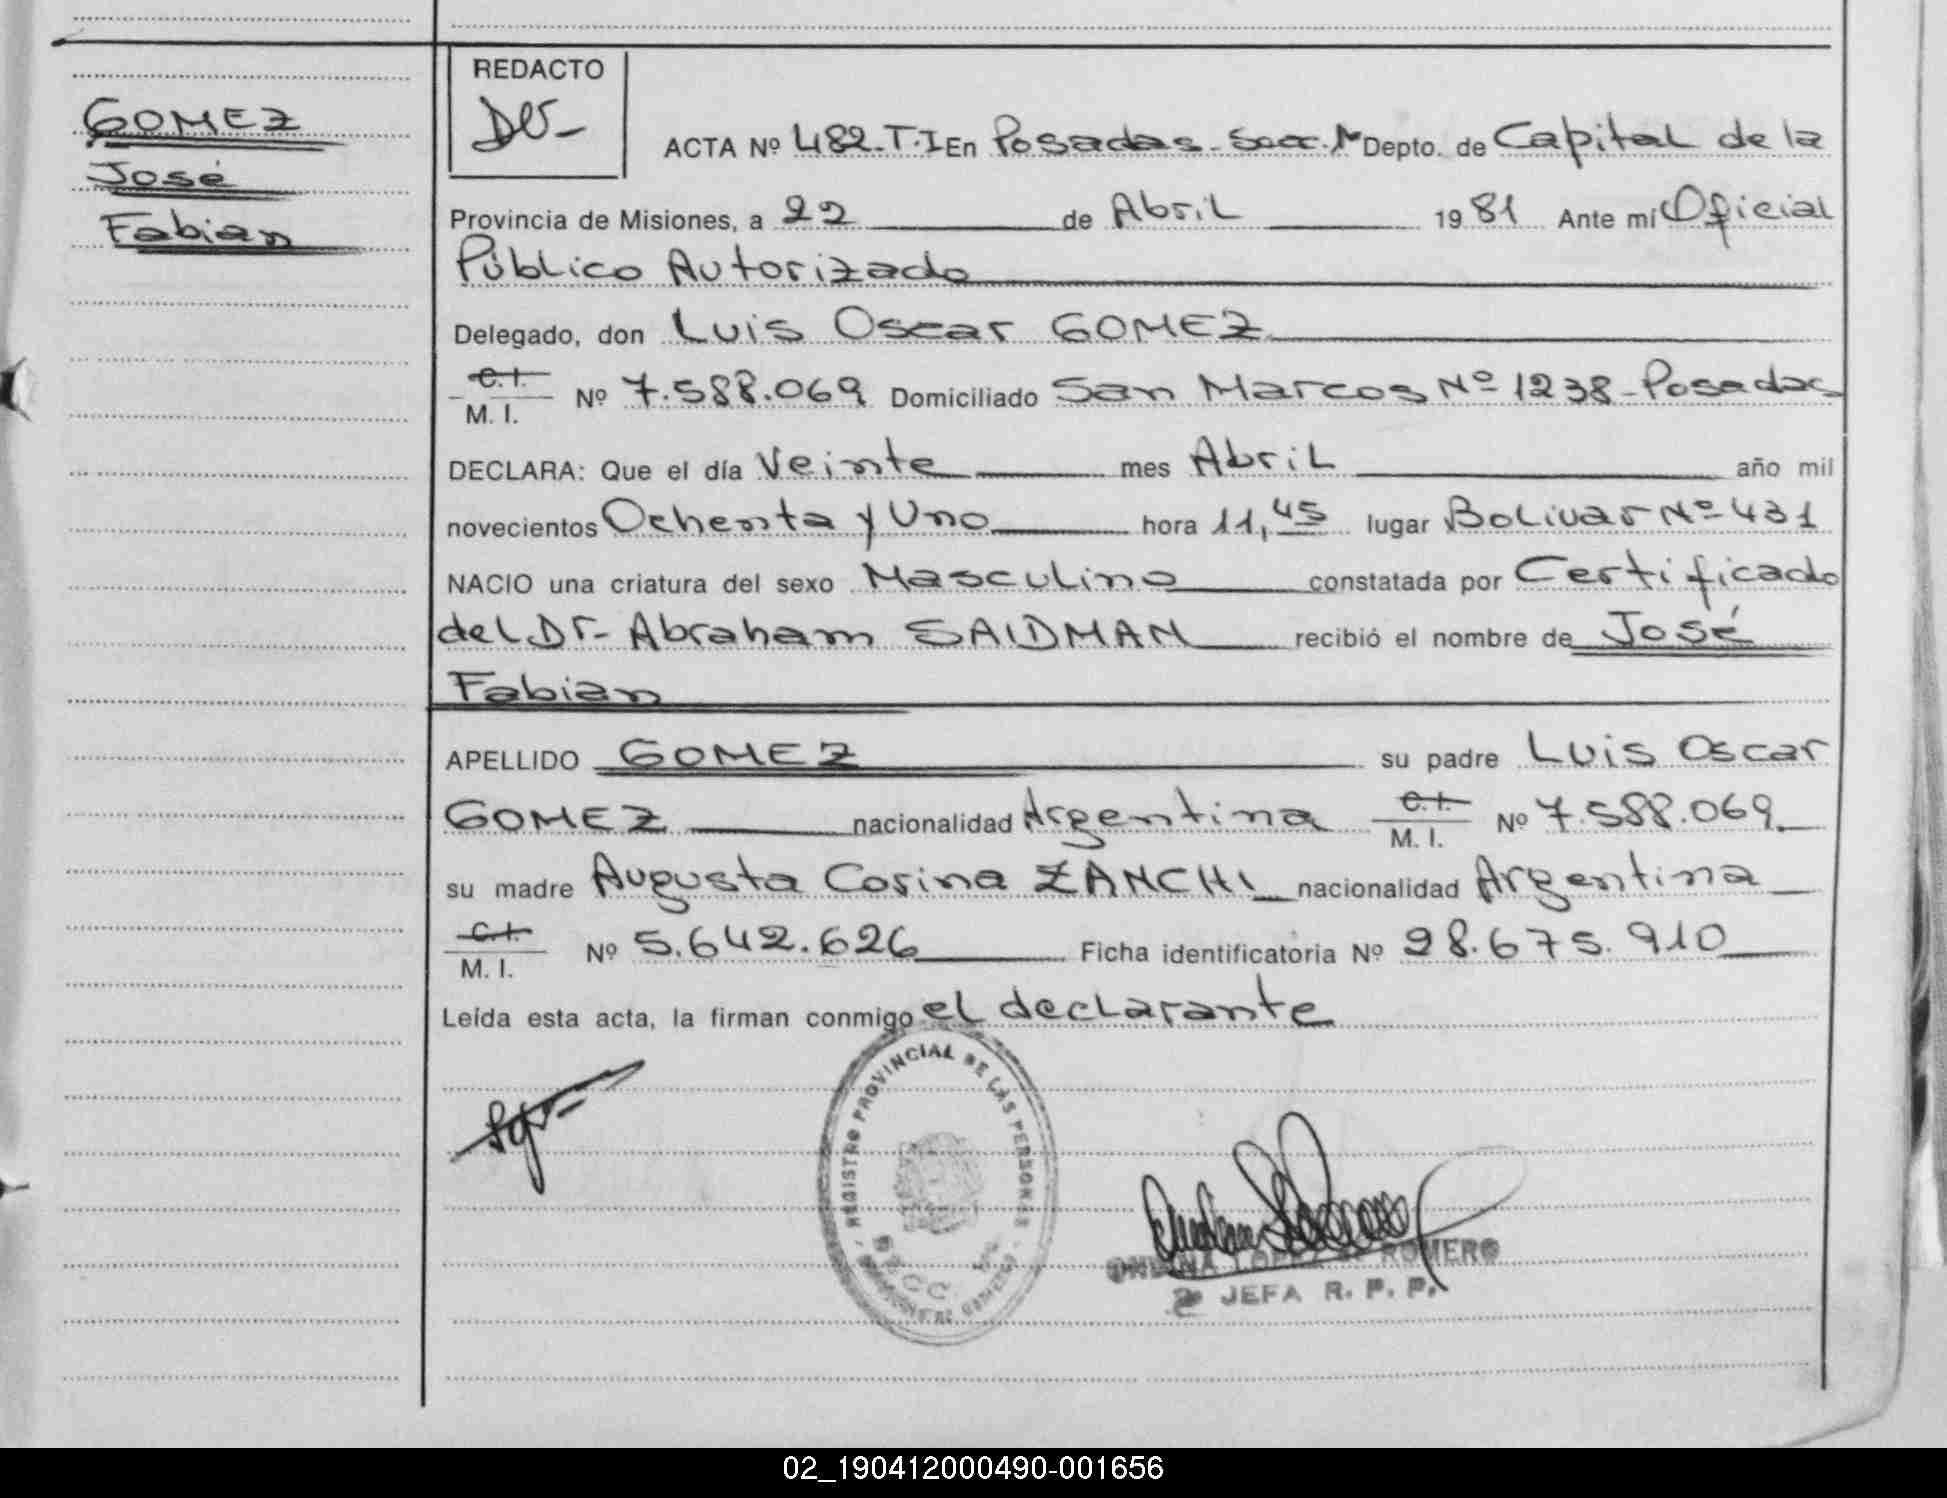 GOMEZ
José
Fabian
REDACTO
ACTA Nº 482-T.I En Posadas-Secc. Depto. de Capital de la
Provincia de Misiones, a 22 de Abril 1981 Ante mí Oficial
Público Autorizado
Delegado, don Luis Oscar GOMEZ
C.I.
M. I. Nº 7.588.069 Domiciliado San Marcos Nº 1238-Posadas
DECLARA: Que el día Veinte mes Abril año mil
novecientos Ochenta y Uno hora 11,45 lugar Bolivar Nº 431
NACIO una criatura del sexo Masculino constatada por Certificado
del Dr- Abraham SAIDMAN recibió el nombre de José
Fabian
APELLIDO GOMEZ su padre Luis Oscar
GOMEZ nacionalidad Argentina C.I. M. I. Nº 7.588.069
su madre Augusta Corina ZANCHI nacionalidad Argentina
C.I.
M. I. Nº 5.642.626 Ficha identificatoria Nº 28.675.910
Leída esta acta, la firman conmigo el declarante
REGISTRO PROVINCIAL DE LAS PERSONAS
ROMERO
JEFA R. P. P.
02_190412000490-001656